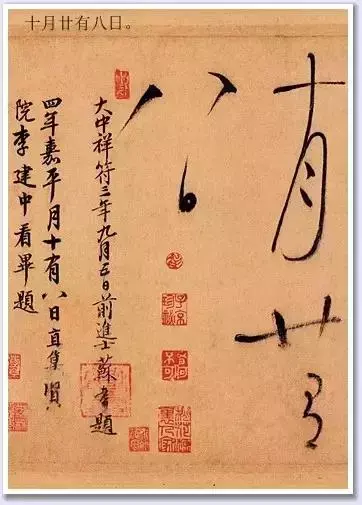 十月廿有八日。
十月廿有
八日
大中祥符三年九月五日前進士蘇耆題
四年嘉平月十有八日直集賢
院李建中看畢題